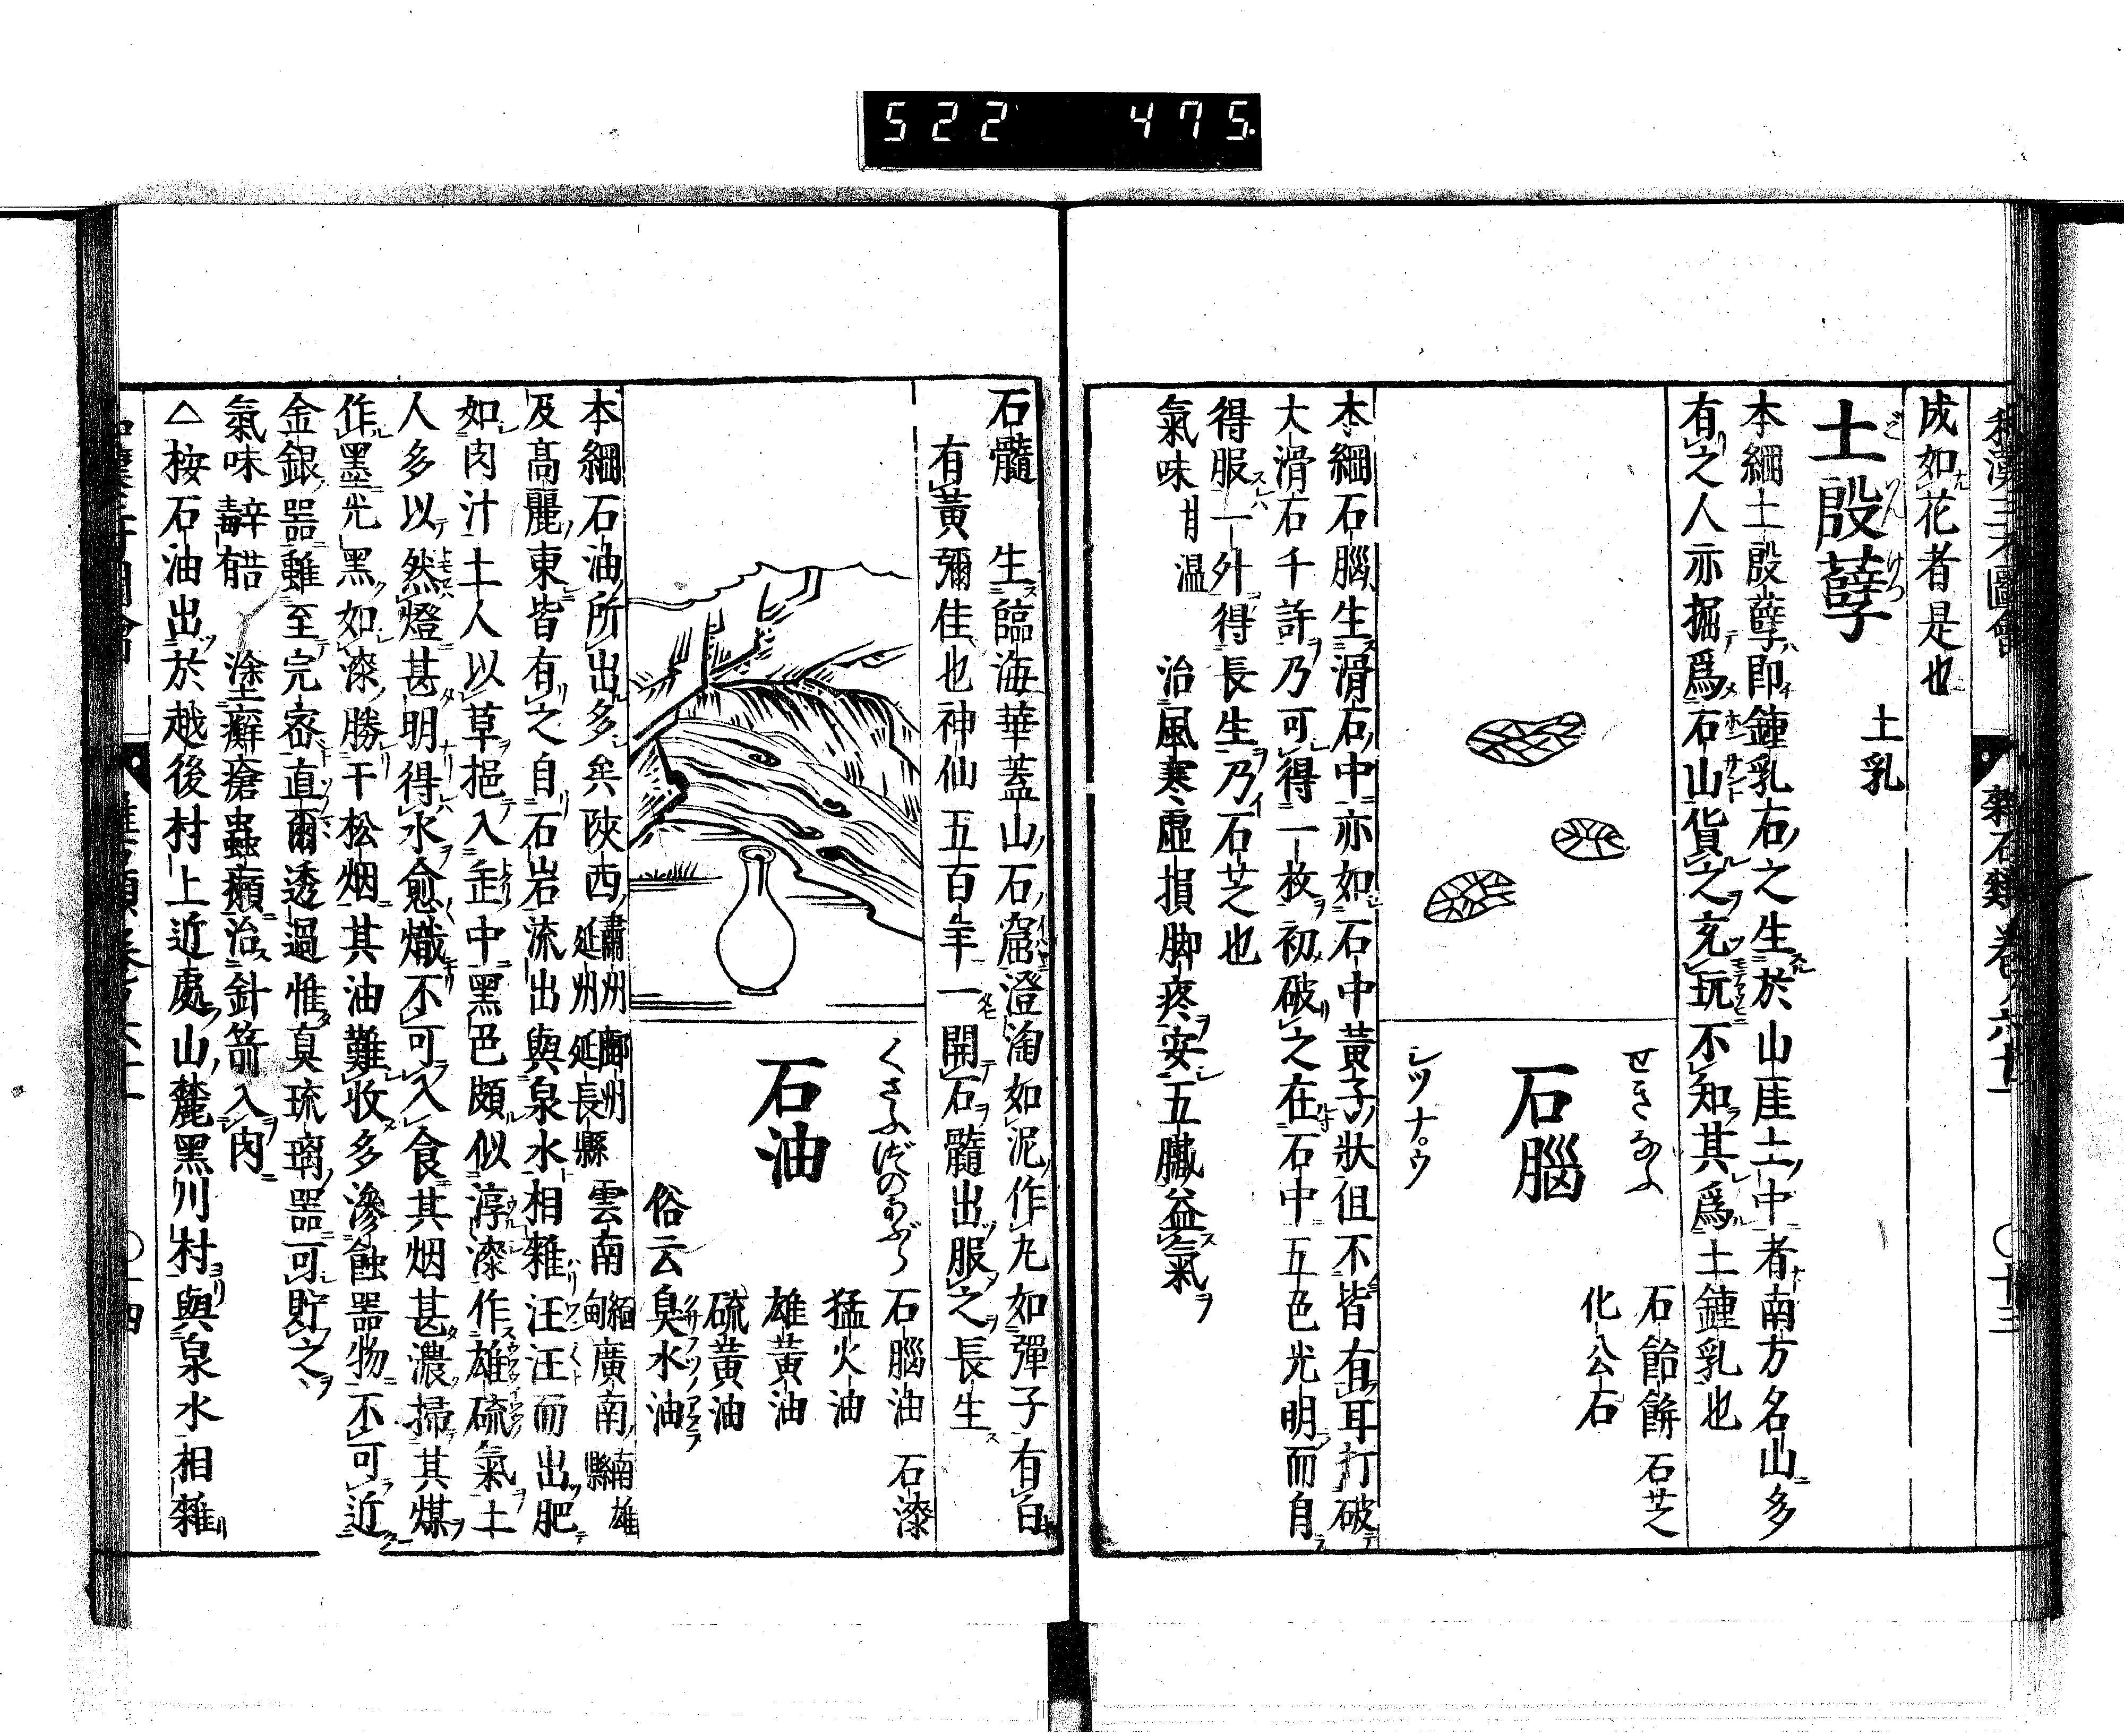 522 475
和漢三才圖會
雜石類
卷六十一
〇十三
成如花者是也
土殷孽
土乳
本綱土殷孽即鍾乳右之生於山崖土中者南方名山多
有之人亦掘爲石山貨之充玩不知其爲土鍾乳也
せきなふ
石腦
シツナ゚ウ
石飴餅 石芝
化公石
本綱石腦生滑石中亦如石中黃子狀但不皆有耳打破
大滑石千許乃可得一枚初破之在石中五色光明而自
得服一外得長生乃石芝也
氣味甘温 治風寒虛損脚疼安五臟益氣
石髓 生臨海華蓋山石窟澄淘如泥作丸如彈子有白
有黃彌佳也神仙五百年一開石髓出服之長生
くさふづのあぶら
石油
石腦油 石漆
猛火油
雄黃油
硫黃油
俗云臭水油
本綱石油所出多矣陝西肅州鄜州延州延長縣雲南緬甸廣南南雄縣
及高麗東皆有之自石岩流出與泉水相雜汪汪而出肥
如肉汁土人以草挹入缶中黑色頗似淳漆作雄硫氣土
人多以然燈甚明得水愈熾不可入食其烟甚濃掃其煤
作墨光黑如漆勝于松烟其油難收多滲蝕器物不可近
金銀器雖至完密直爾透過惟真琉璃器可貯之
氣味辛苦有毒 塗癬瘡蟲癩治針箭入肉
△按石油出於越後村上近處山麓黑川村與泉水相雜